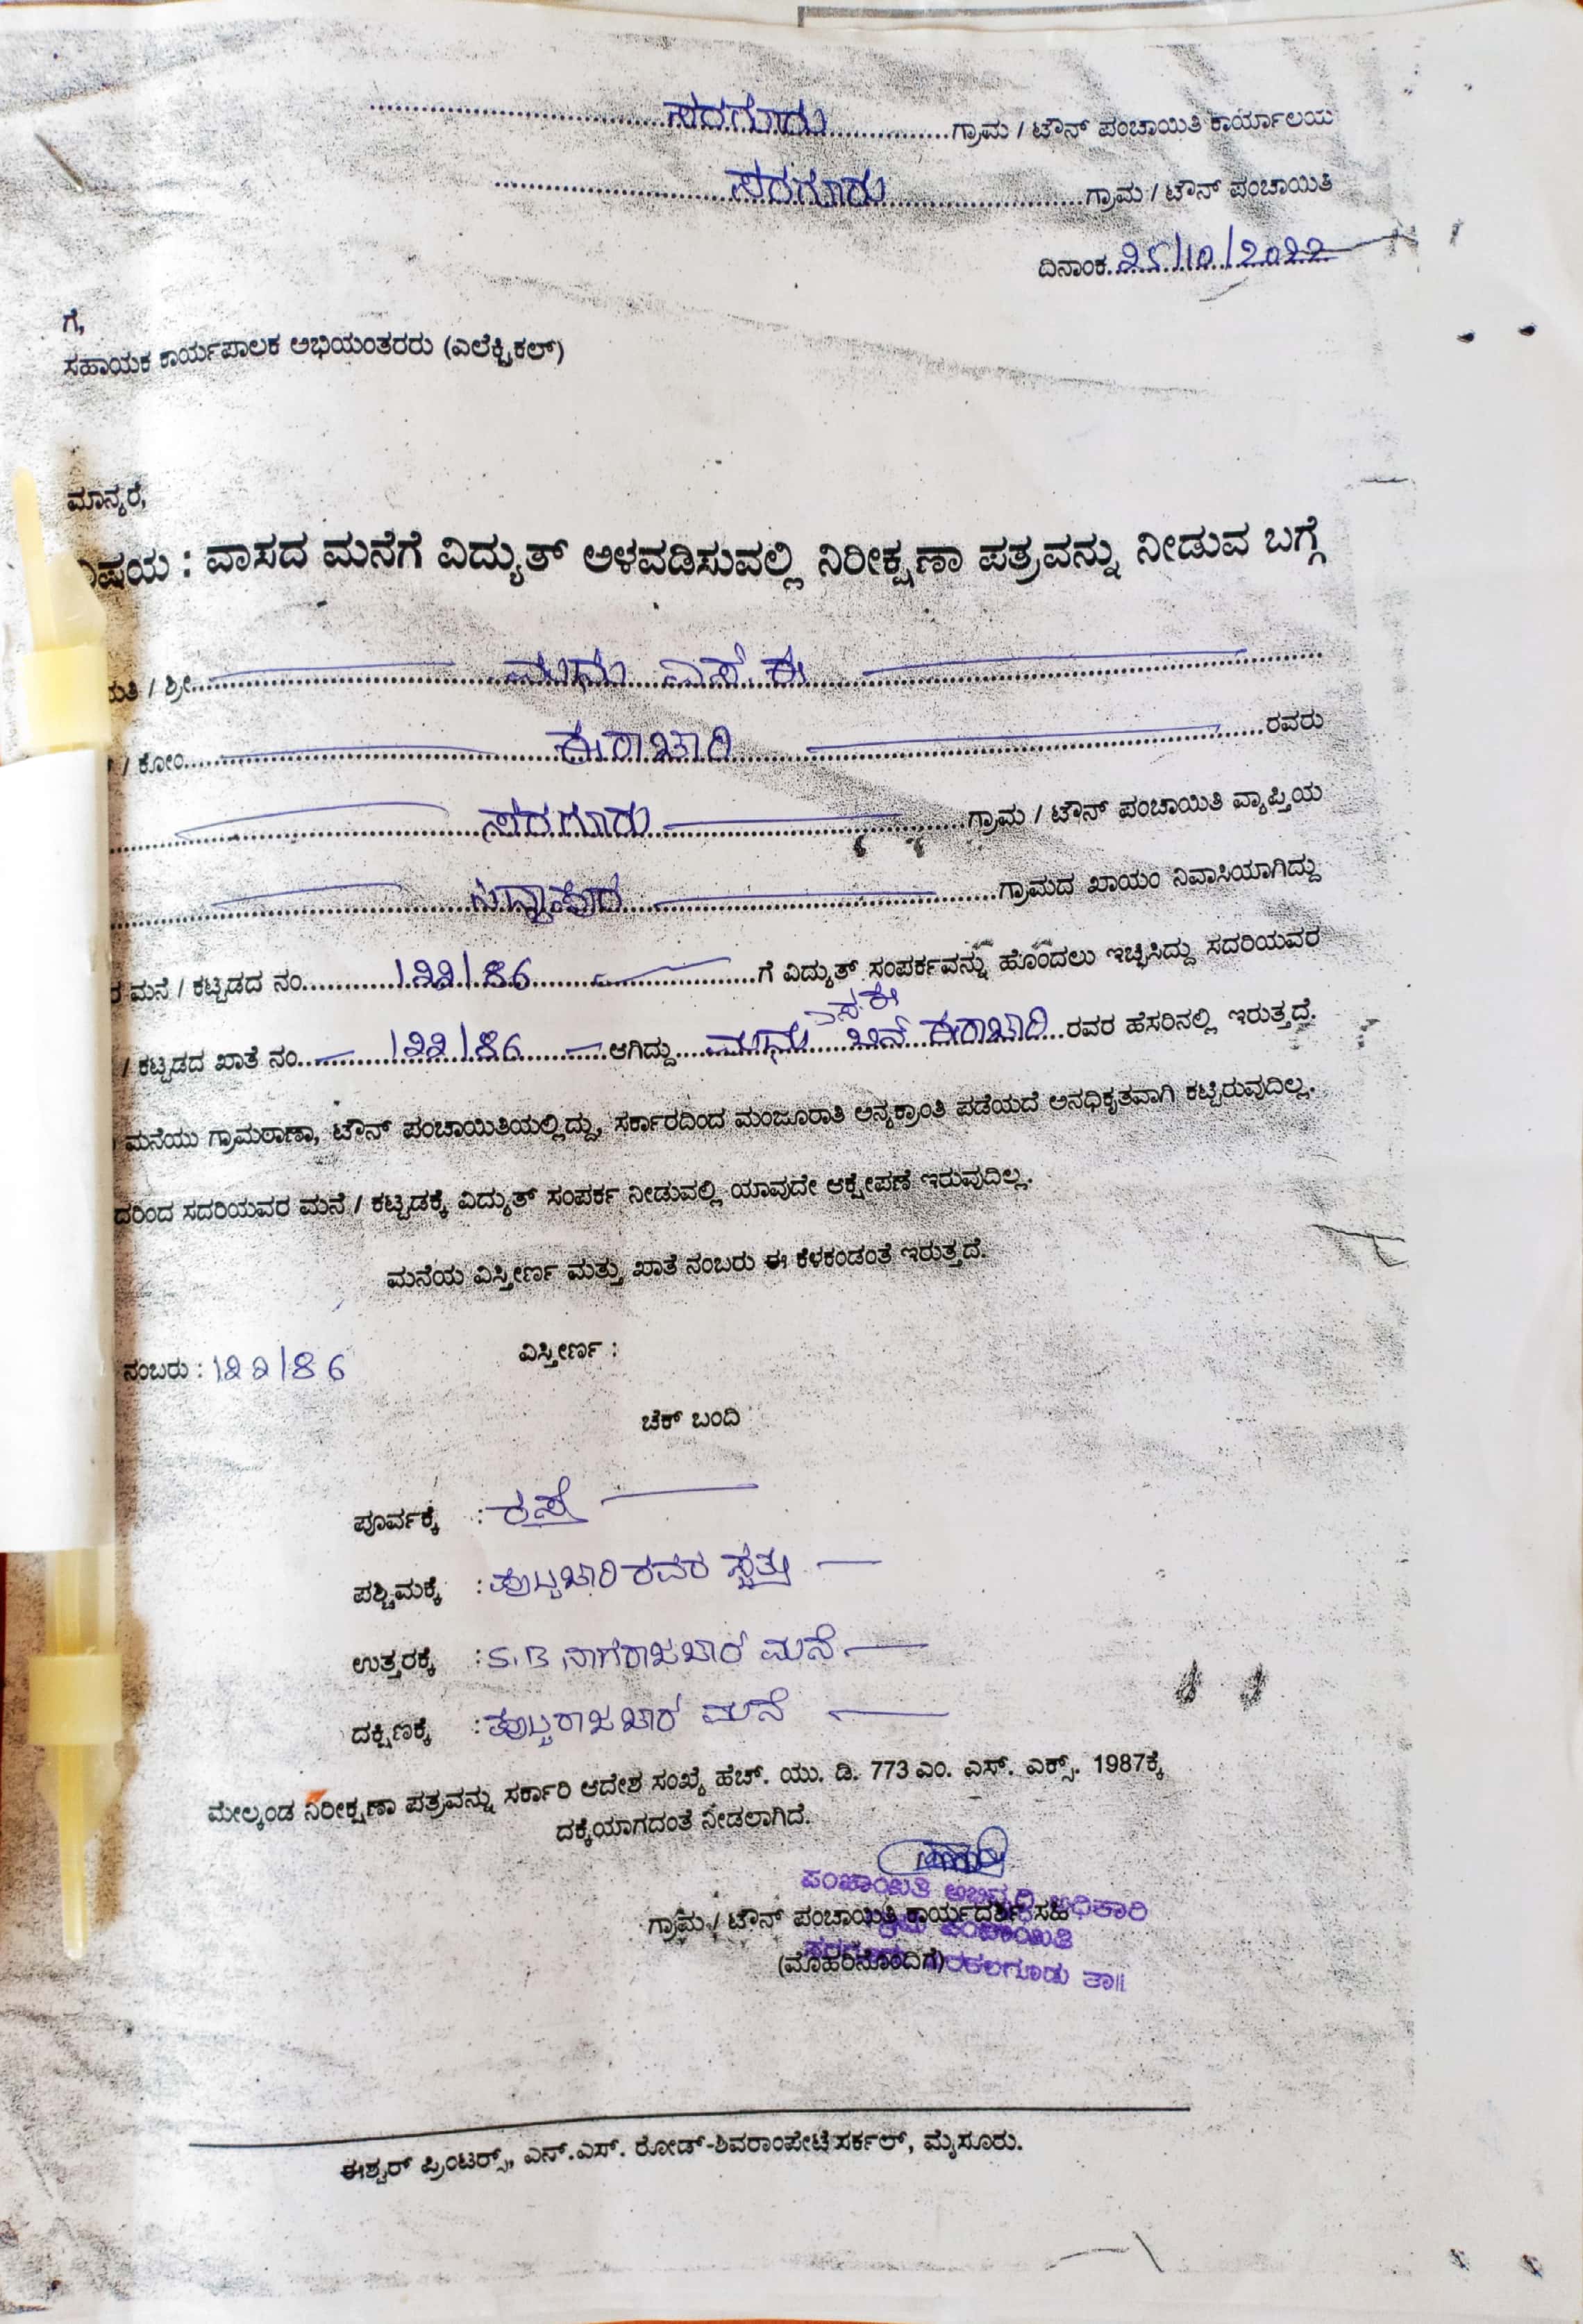 ಸರಗೂರು ಗ್ರಾಮ / ಟೌನ್ ಪಂಚಾಯಿತಿ ಕಾರ್ಯಾಲಯ
ಸರಗೂರು ಗ್ರಾಮ / ಟೌನ್ ಪಂಚಾಯಿತಿ
ದಿನಾಂಕ 25/10/2022
ಗೆ,
ಸಹಾಯಕ ಕಾರ್ಯಪಾಲಕ ಅಭಿಯಂತರರು (ಎಲೆಕ್ಟ್ರಿಕಲ್)
ಮಾನ್ಯರೆ,
ವಿಷಯ : ವಾಸದ ಮನೆಗೆ ವಿದ್ಯುತ್ ಅಳವಡಿಸುವಲ್ಲಿ ನಿರೀಕ್ಷಣಾ ಪತ್ರವನ್ನು ನೀಡುವ ಬಗ್ಗೆ
ಮತಿ / ಶ್ರೀ ಮಧು ಎಸ್. ಈ
/ ಕೋಂ ಈರಾಚಾರಿ ರವರು
ಸರಗೂರು ಗ್ರಾಮ / ಟೌನ್ ಪಂಚಾಯಿತಿ ವ್ಯಾಪ್ತಿಯ
ಗ್ರಾಮದ ಖಾಯಂ ನಿವಾಸಿಯಾಗಿದ್ದು
ರ ಮನೆ / ಕಟ್ಟಡದ ನಂ 122/86 ಗೆ ವಿದ್ಯುತ್ ಸಂಪರ್ಕವನ್ನು ಹೊಂದಲು ಇಚ್ಛಿಸಿದ್ದು ಸದರಿಯವರ
/ ಕಟ್ಟಡದ ಖಾತೆ ನಂ 122/86 ಆಗಿದ್ದು ಮಧು ಎಸ್ ಈ ಬಿನ್ ಈರಾಚಾರಿ ರವರ ಹೆಸರಿನಲ್ಲಿ ಇರುತ್ತದೆ.
ಮನೆಯು ಗ್ರಾಮಠಾಣಾ, ಟೌನ್ ಪಂಚಾಯಿತಿಯಲ್ಲಿದ್ದು, ಸರ್ಕಾರದಿಂದ ಮಂಜೂರಾತಿ ಅನ್ಯಕ್ರಾಂತಿ ಪಡೆಯದೆ ಅನಧಿಕೃತವಾಗಿ ಕಟ್ಟಿರುವುದಿಲ್ಲ.
ದರಿಂದ ಸದರಿಯವರ ಮನೆ / ಕಟ್ಟಡಕ್ಕೆ ವಿದ್ಯುತ್ ಸಂಪರ್ಕ ನೀಡುವಲ್ಲಿ ಯಾವುದೇ ಆಕ್ಷೇಪಣೆ ಇರುವುದಿಲ್ಲ.
ಮನೆಯ ವಿಸ್ತೀರ್ಣ ಮತ್ತು ಖಾತೆ ನಂಬರು ಈ ಕೆಳಕಂಡಂತೆ ಇರುತ್ತದೆ.
ನಂಬರು : 122/86 ವಿಸ್ತೀರ್ಣ :
ಚೆಕ್ ಬಂದಿ
ಪೂರ್ವಕ್ಕೆ : ರಸ್ತೆ
ಪಶ್ಚಿಮಕ್ಕೆ : ಪುಟ್ಟಚಾರಿ ರವರ ಸ್ವತ್ತು
ಉತ್ತರಕ್ಕೆ : S.B ನಾಗರಾಜಚಾರ್ ಮನೆ
ದಕ್ಷಿಣಕ್ಕೆ : ಪುಟ್ಟರಾಜಚಾರ್ ಮನೆ
ಮೇಲ್ಕಂಡ ನಿರೀಕ್ಷಣಾ ಪತ್ರವನ್ನು ಸರ್ಕಾರಿ ಆದೇಶ ಸಂಖ್ಯೆ ಹೆಚ್. ಯು. ಡಿ. 773 ಎಂ. ಎಸ್. ಎಕ್ಸ್. 1987ಕ್ಕೆ
ದಕ್ಕೆಯಾಗದಂತೆ ನೀಡಲಾಗಿದೆ.
ಪಂಚಾಯಿತಿ ಅಭಿವೃದ್ಧಿ ಅಧಿಕಾರಿ
ಗ್ರಾಮ / ಟೌನ್ ಪಂಚಾಯಿತಿ ಕಾರ್ಯದರ್ಶಿ ಸಹಿ
ಗ್ರಾಮ ಪಂಚಾಯಿತಿ
(ಮೊಹರಿನೊಂದಿಗೆ)
ಅರಕಲಗೂಡು ತಾ||
ಈಶ್ವರ್ ಪ್ರಿಂಟರ್ಸ್, ಎನ್.ಎಸ್. ರೋಡ್-ಶಿವರಾಂಪೇಟೆ ಸರ್ಕಲ್, ಮೈಸೂರು.